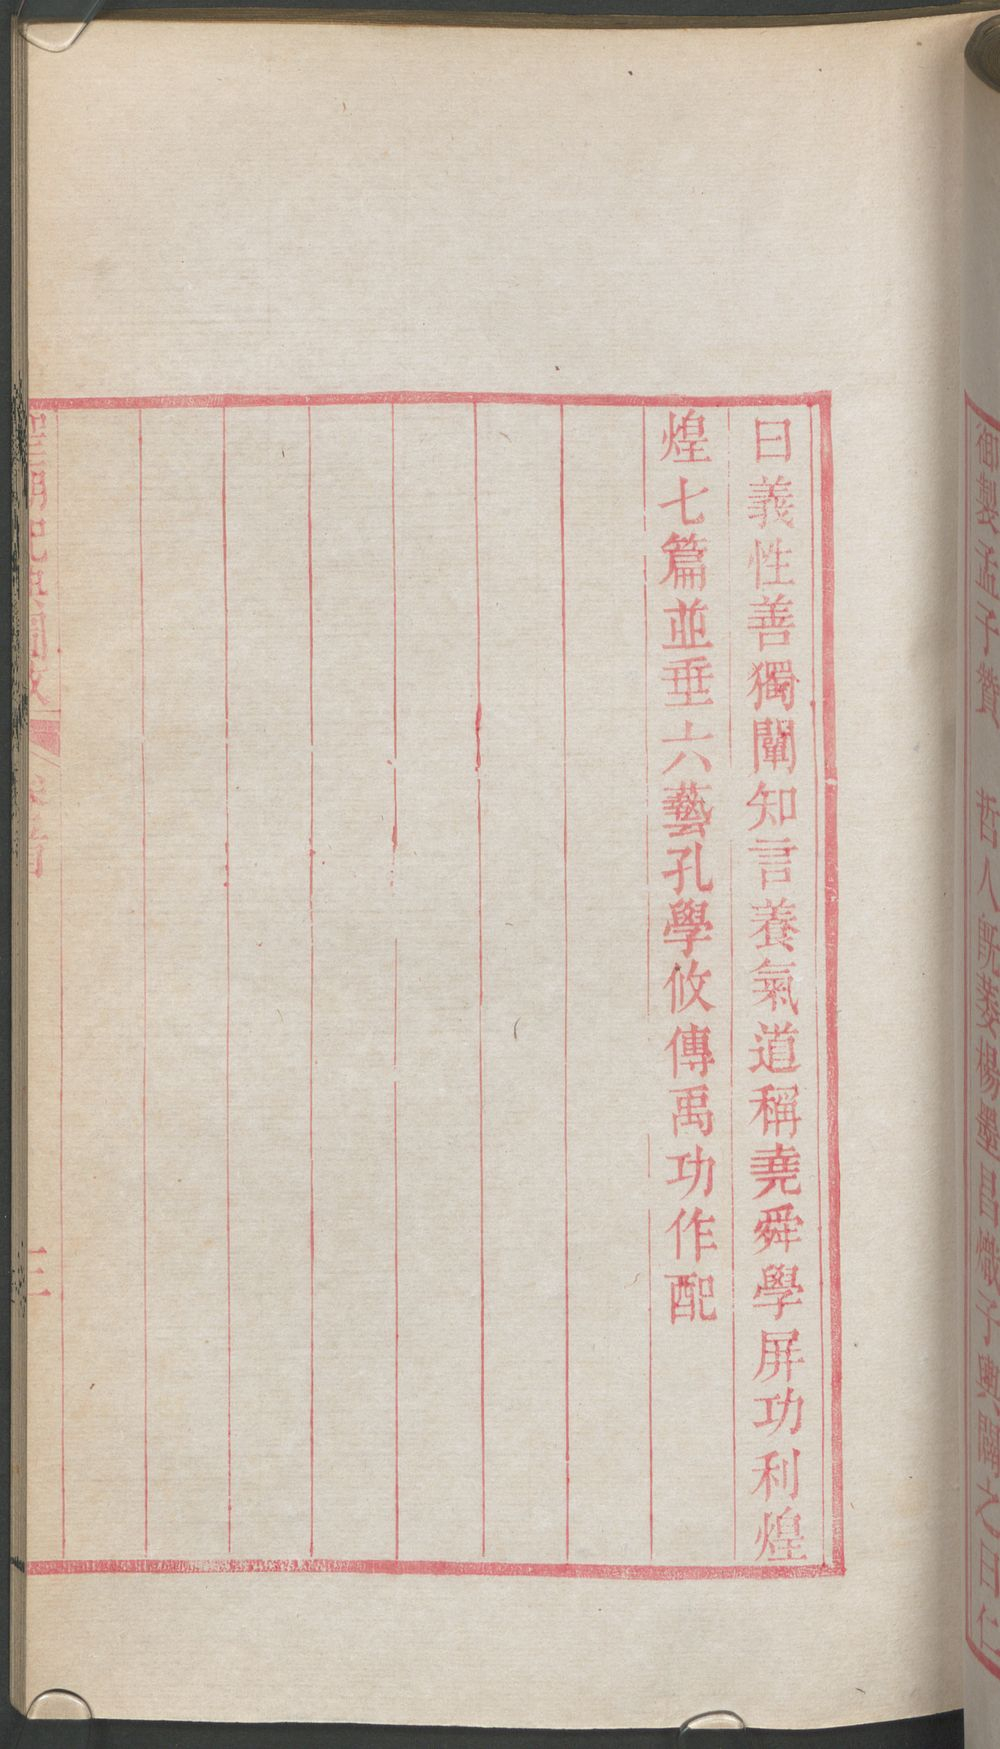 御製孟子贊 哲人既萎楊墨昌熾子輿闢之曰仁
曰義性善獨闡知言養氣道稱堯舜學屏功利煌
煌七篇並垂六藝孔學攸傳禹功作配
三